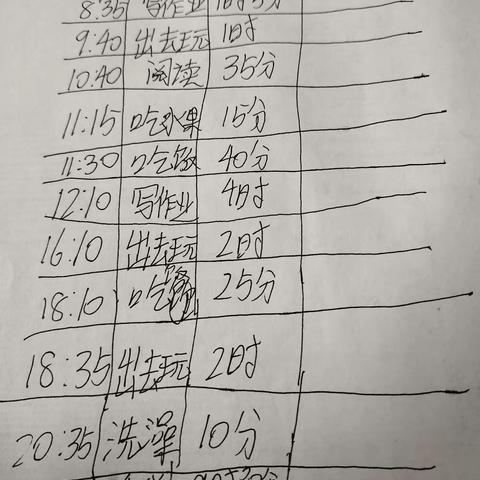 8:35 写作业 1时5分
9:40 出去玩 1时
10:40 阅读 35分
11:15 吃水果 15分
11:30 吃饭 40分
12:10 写作业 4时
16:10 出去玩 2时
18:10 吃 25分
18:35 出去玩 2时
20:35 洗澡 10分